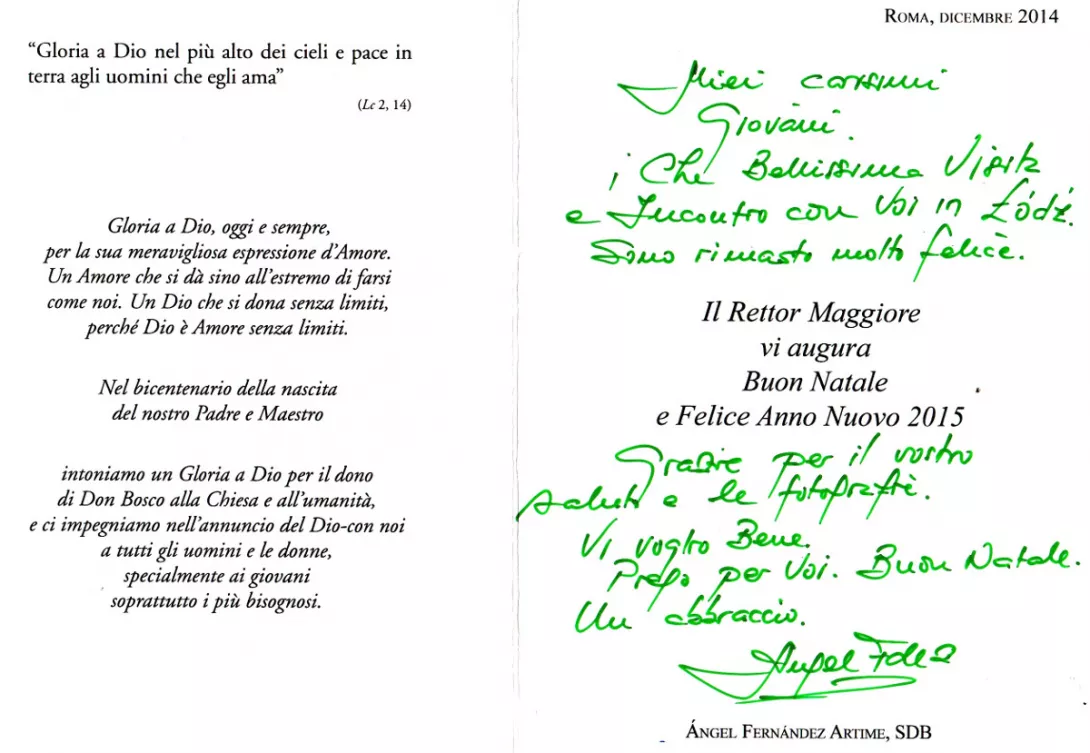 “Gloria a Dio nel più alto dei cieli e pace in
terra agli uomini che egli ama”
(Lc 2, 14)
Gloria a Dio, oggi e sempre,
per la sua meravigliosa espressione d’Amore.
Un Amore che si dà sino all’estremo di farsi
come noi. Un Dio che si dona senza limiti,
perché Dio è Amore senza limiti.
Nel bicentenario della nascita
del nostro Padre e Maestro
intoniamo un Gloria a Dio per il dono
di Don Bosco alla Chiesa e all’umanità,
e ci impegniamo nell’annuncio del Dio-con noi
a tutti gli uomini e le donne,
specialmente ai giovani
soprattutto i più bisognosi.
Roma, dicembre 2014
Miei carssimi
Giovani.
¡ Che Bellissima Visita
e Incontro con Voi in Łódź.
Sono rimasto molto felice.
Il Rettor Maggiore
vi augura
Buon Natale
e Felice Anno Nuovo 2015
Grazie per il vostro
saluti e le fotografie.
Vi voglio Bene.
Prego per Voi. Buon Natale.
Un abbraccio.
Angel
Ángel Fernández Artime, SDB